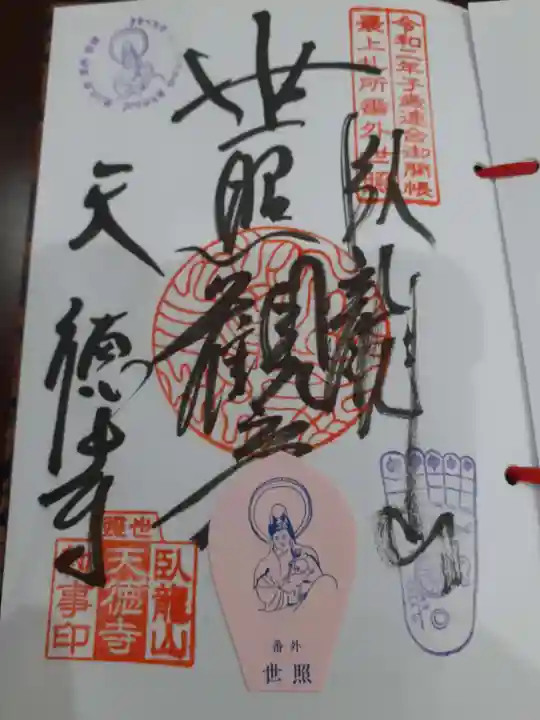 令和二年子歳連合御開帳
最上札所番外世照
臥龍山
世照観音
天徳寺
世照
臥龍山
天徳寺
知事印
番外
世照